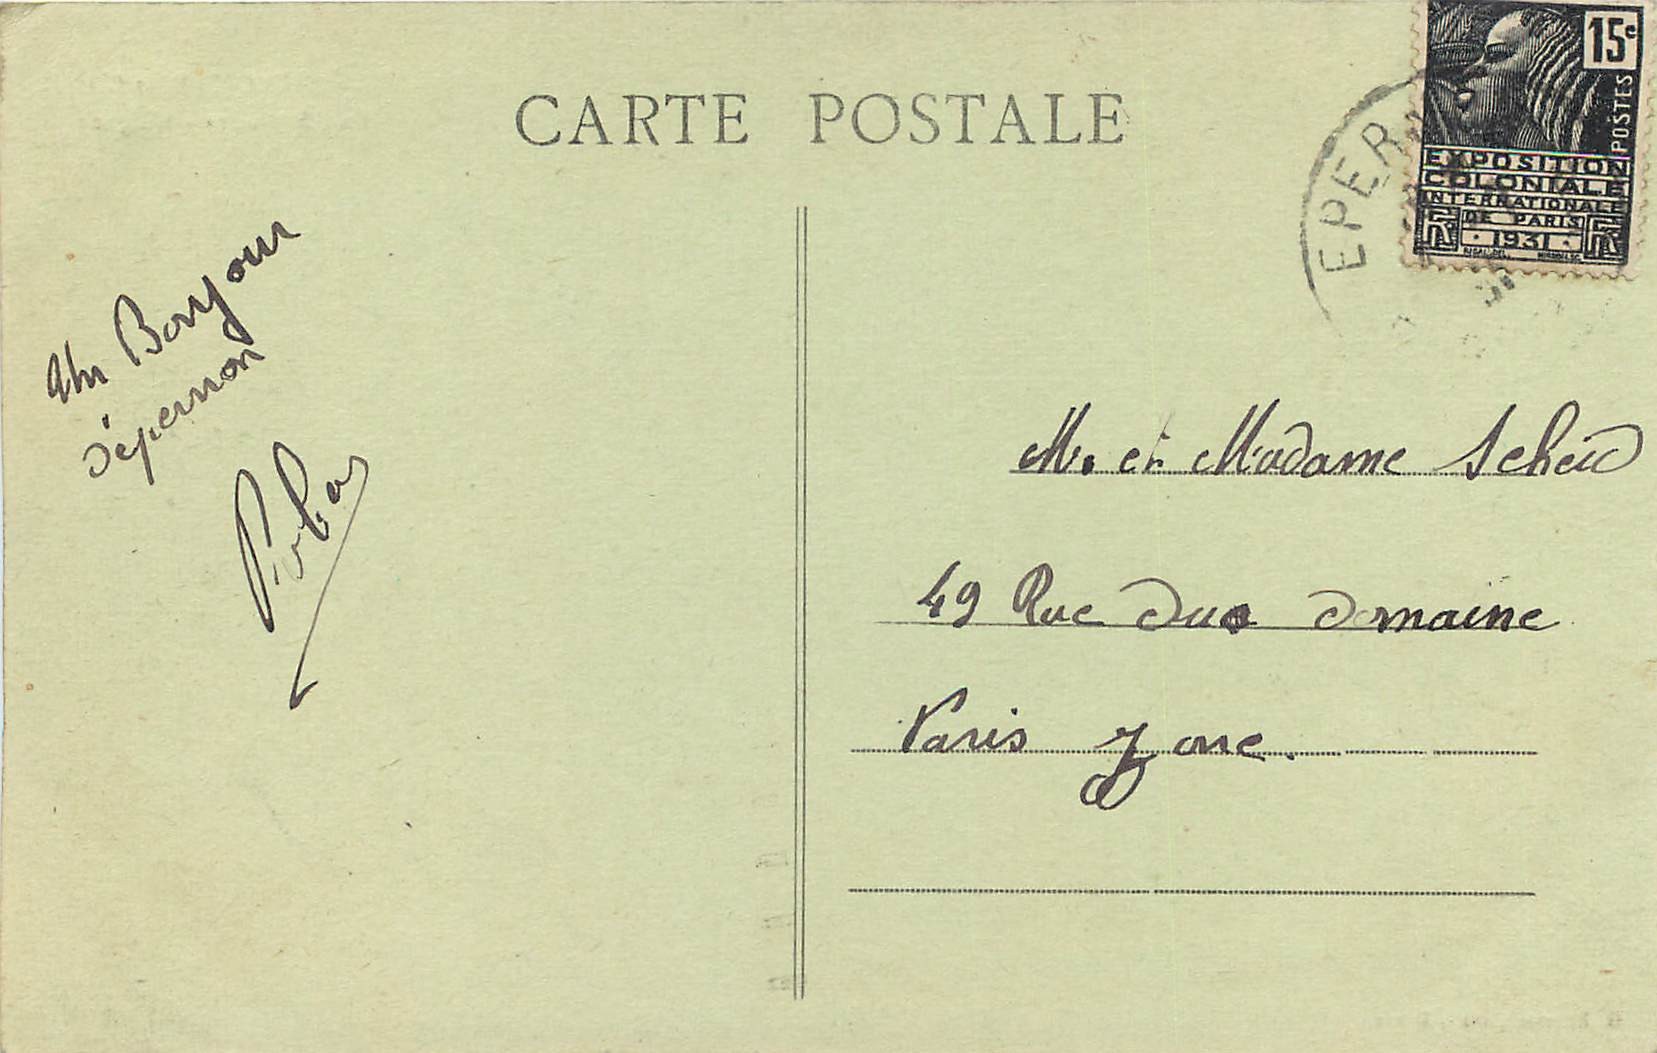 CARTE POSTALE
15c
POSTES
EXPOSITION
COLONIALE
INTERNATIONALE
DE PARIS
1931
EPER
Un Bonjour
d'épernon
M. et Madame Scheid
49 Rue du domaine
Paris Zone.